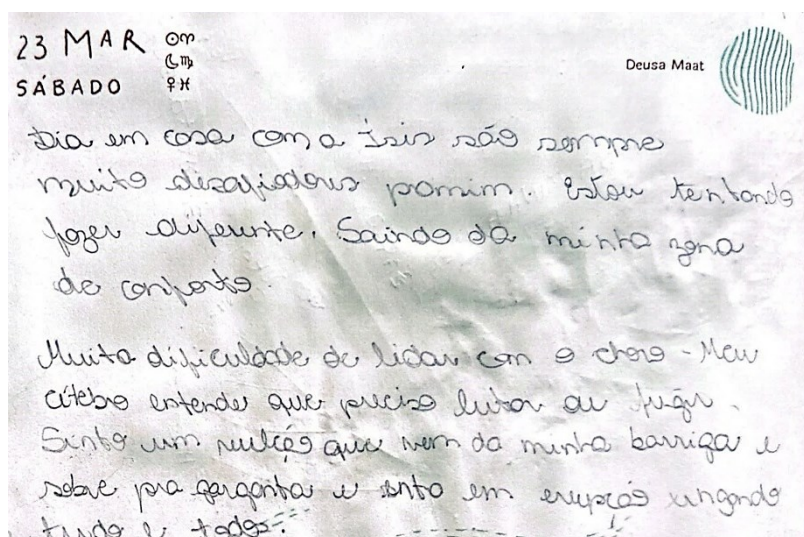 23 MAR ☉♈
☾♍
SÁBADO ♀♓
Deusa Maat
Dia em casa com a Ísis são sempre
muito desafiadores pra mim. Estou tentando
fazer diferente. Saindo da minha zona
de conforto.
Muita dificuldade de lidar com o choro - Meu
cérebro entende que preciso lutar ou fugir.
Sinto um vulcão que vem da minha barriga e
sobe pra garganta e entro em erupção xingando
tudo e todos.